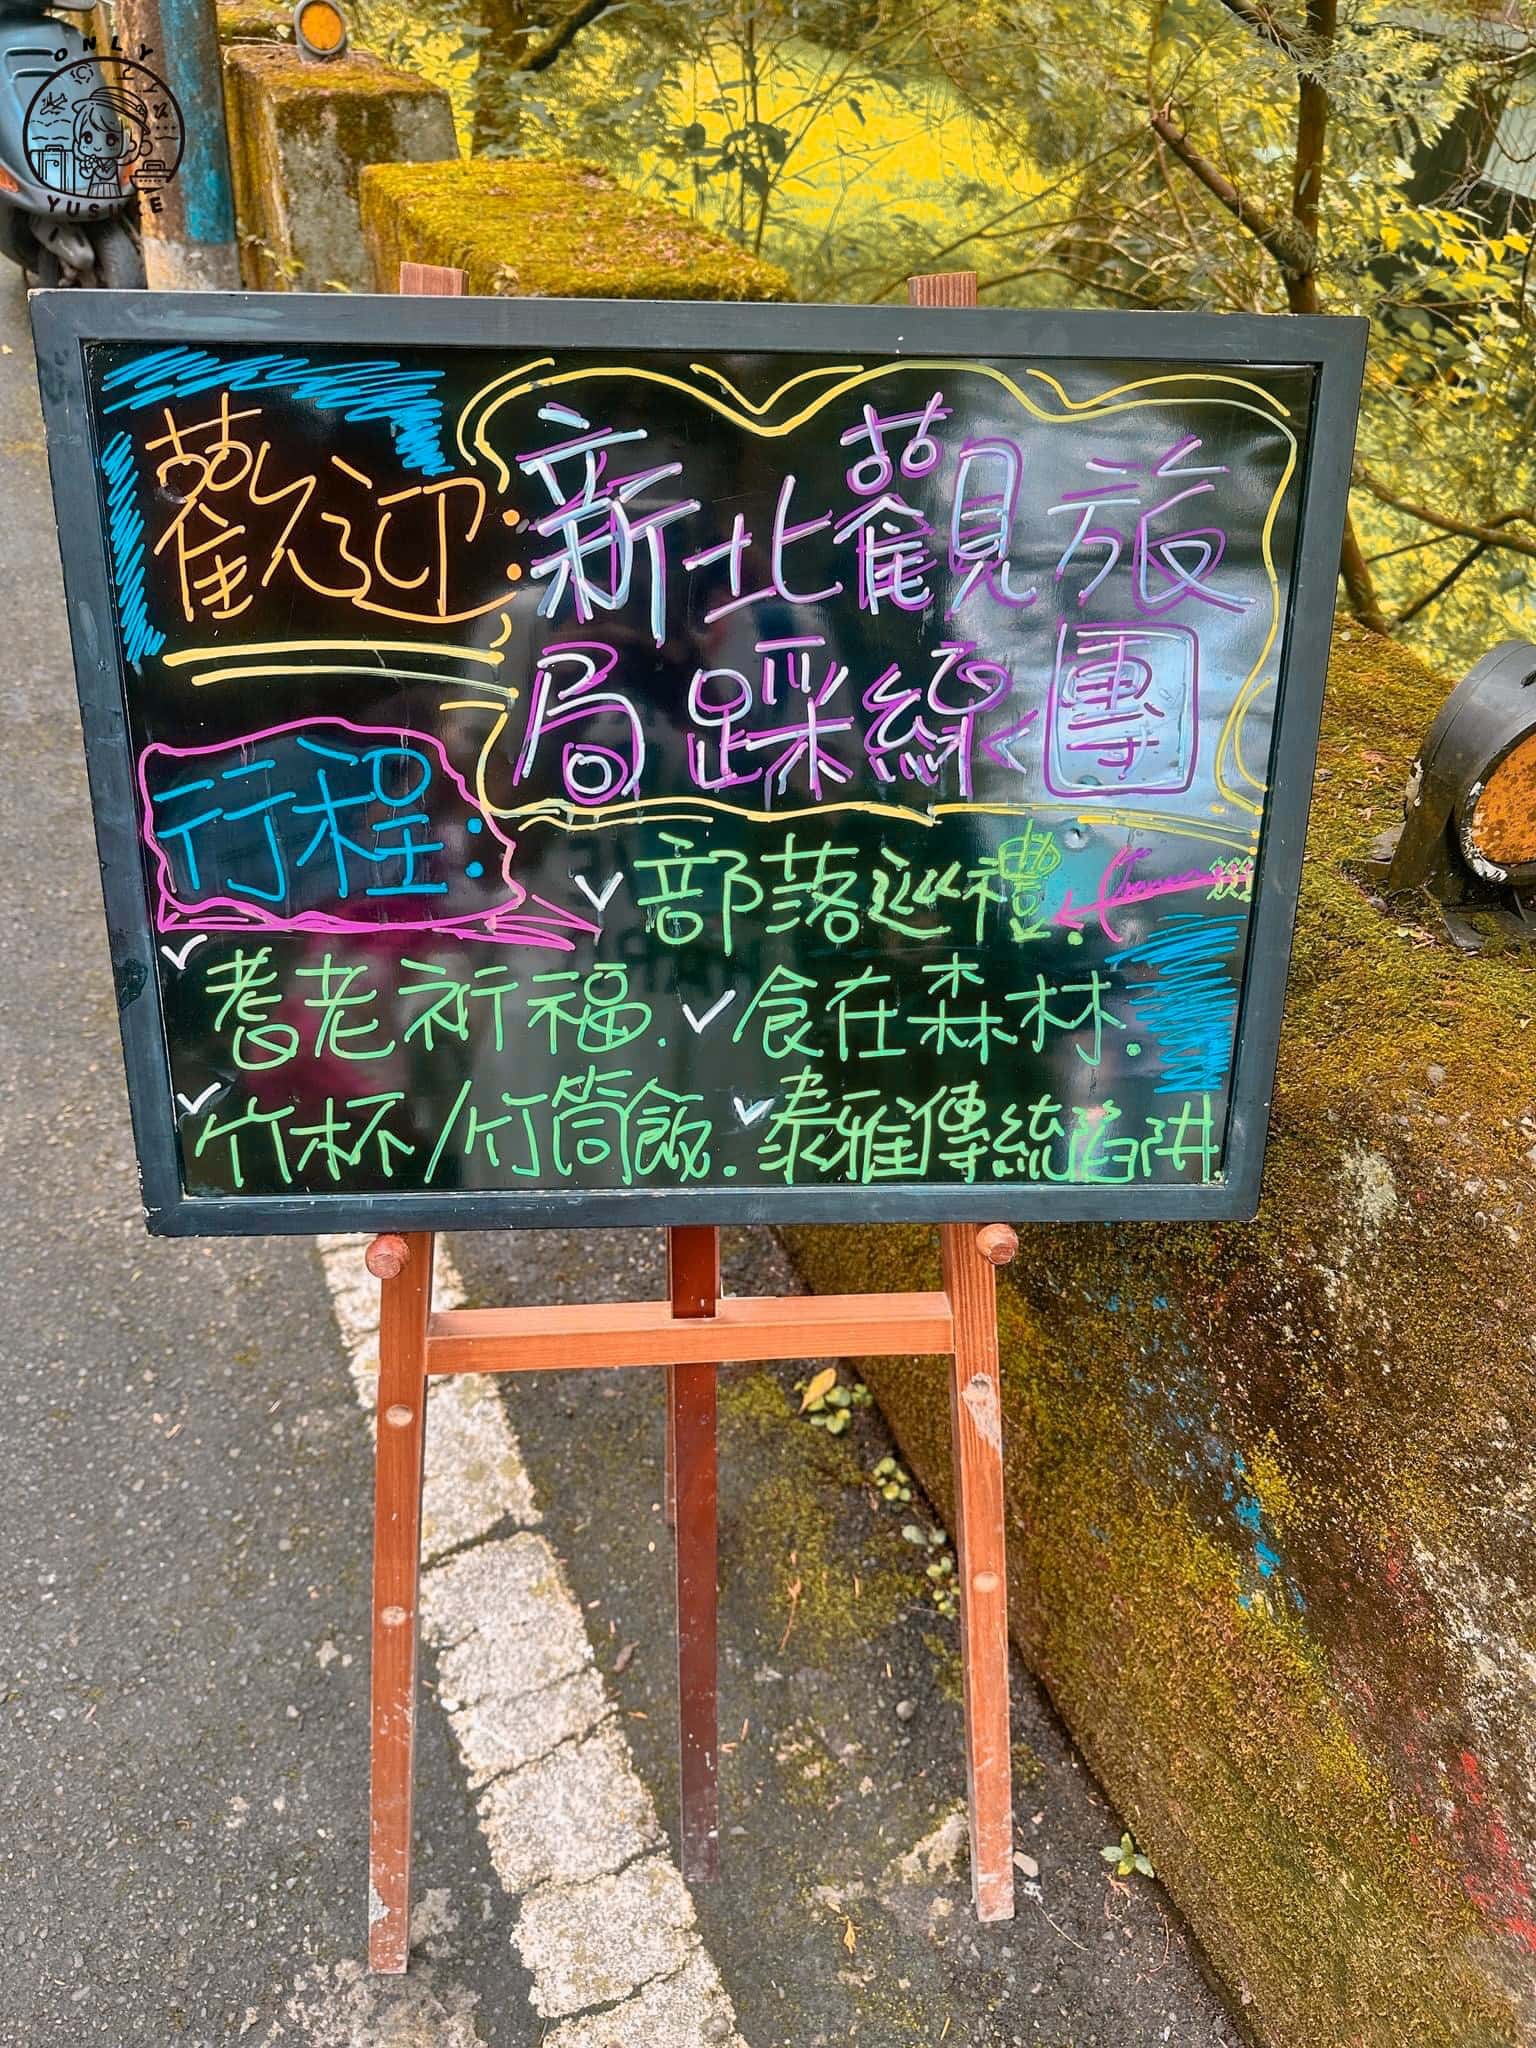 ONLY
YUSUKE
歡迎:
新北觀旅
局踩線團
行程:
✓部落巡禮.
✓耆老祈福.✓食在森林.
✓竹杯/竹筒飯.✓泰雅傳統陷阱.